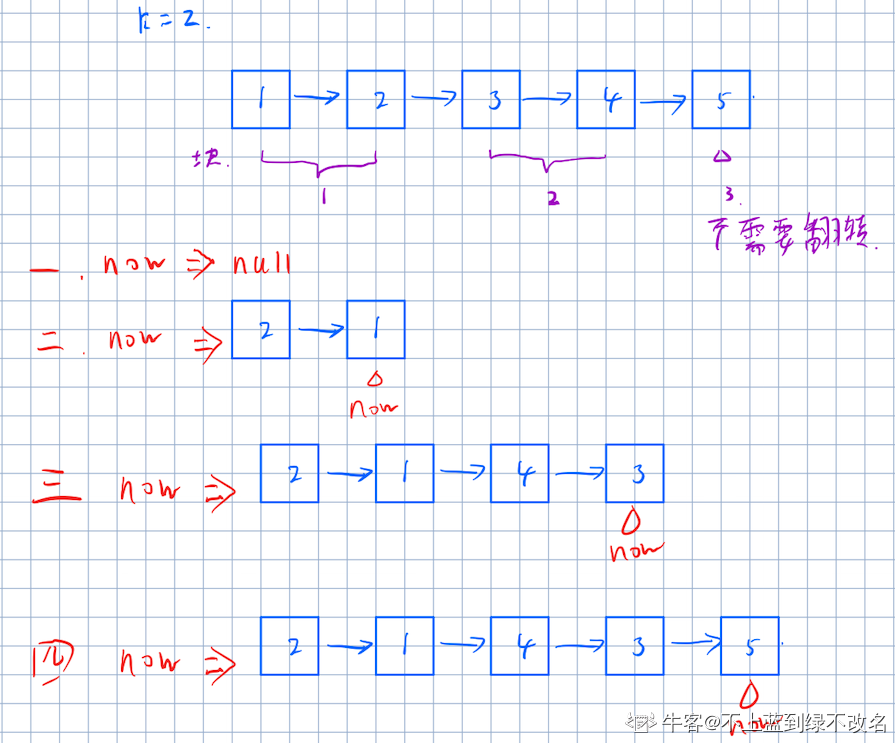 k=2.
1 → 2 → 3 → 4 → 5
块.
1 2 3.
不需要翻转.
一. now ⇒ null
二. now ⇒ 2 → 1
now
三 now ⇒ 2 → 1 → 4 → 3
now
四 now ⇒ 2 → 1 → 4 → 3 → 5
now
牛客@不上蓝到绿不改名